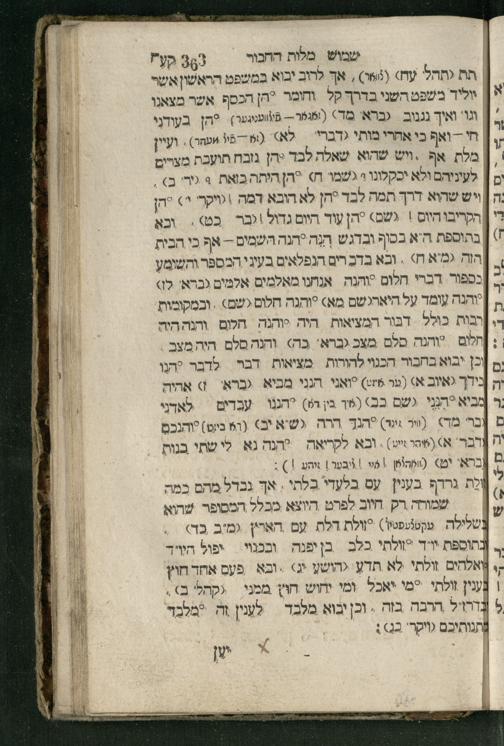 שמוש מלות החבור 363 קעח
תת (תהל׳ עח) (לוואר), אך לרוב יבוא במשפט הראשון אשר
יוליד משפט השני בדרך קל וחומר °הן הכסף אשר מצאנו
וגו ואיך נגנוב (ברא׳ מד) הן בעודני
חי — ואף כי אחרי מותי (דברי׳ לא) ועיין
מלת אף . ויש שהוא שאלה לבד °הן נזבח תועבת מצרים
לעיניהם ולא יסקלונו ? (שמו׳ ח) °הן היתה כזאת ? (יר׳ ב) .
ויש שהוא דרך תמה לבד °הן לא הובא דמה ! (ויקר׳ י) °הן
הקריבו היום ! (שם) °הן עוד היום גדול ! (בר׳ כט) . ובא
בתוספת ה״א בסוף ובדגש הִנֵּה °הנה השמים — אף כי הבית
הזה (מ״א ח) . ובא בדברים הנפלאים בעיני המספר והשומע
כספור דברי חלום °והנה אנחנו מאלמים אלמים (ברא׳ לז)
°והנה עומד על היאר (שם מא) °והנה חלום (שם) . ובמקומות
רבות כולל דבור המציאות היה °והנה חלום והנה היה
חלום °והנה סלם מצב (ברא׳ כח) והנה סלם היה מצב .
וכן יבוא בחבור הכנוי להורות מציאות דבר לדבר °הנו
בידך (איוב א) (ער איזט) °ואני הנני מביא (ברא׳ ו) אהיה
מביא °הִנֵּנִי (שם כב) (איך בין דא) °הננו עבדים לאדני
(בר׳ מד) (וויר זינד) °הנך הרה (ש״א יב) (דא ביסט) °והנכם
(דבר׳ א) (איהר זייט) . ובא לקריאה °הנה נא לי שתי בנות
(ברא׳ יט) :
זולת נרדף בענין עם בלעדי בלתי . אך נבדל מהם כמה
שמורה רק חיוב לפרט היוצא מכלל המסופר שהוא
בשלילה °זולת דלת עם הארץ (מ״ב כד) .
ובתוספת יו״ד °זולתי כלב בן יפנה ובכנוי יפול היו״ד
ואלהים זולתי לא תדע (הושע יג) . ובא פעם אחד חוץ
בענין זולתי °מי יאכל ומי יחוש חוץ ממני (קהל׳ ב) .
ובדרז״ל הרבה בזה . וכן יבוא מלבד לענין זה °מלבד
מתנותיכם (ויקר׳ כג) :
יען